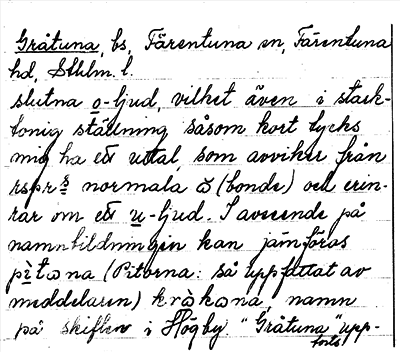 Gråtuna, bs, Färentuna sn, Färentuna
hd, Sthlm. l.
slutna o-ljud, vilket även i stark-
tonig ställning såsom kort tycks
mig ha ett uttal, som avviker från
rspr:s normala ŏ (bonde) och erin-
rar om ett u-ljud. I avseende på
namnbildningen kan jämföras
pìtωna (Pitorna: så uppfattat av
meddelaren) kràkωna, namn
på skiften i Högby "Gråtuna" upp-
forts